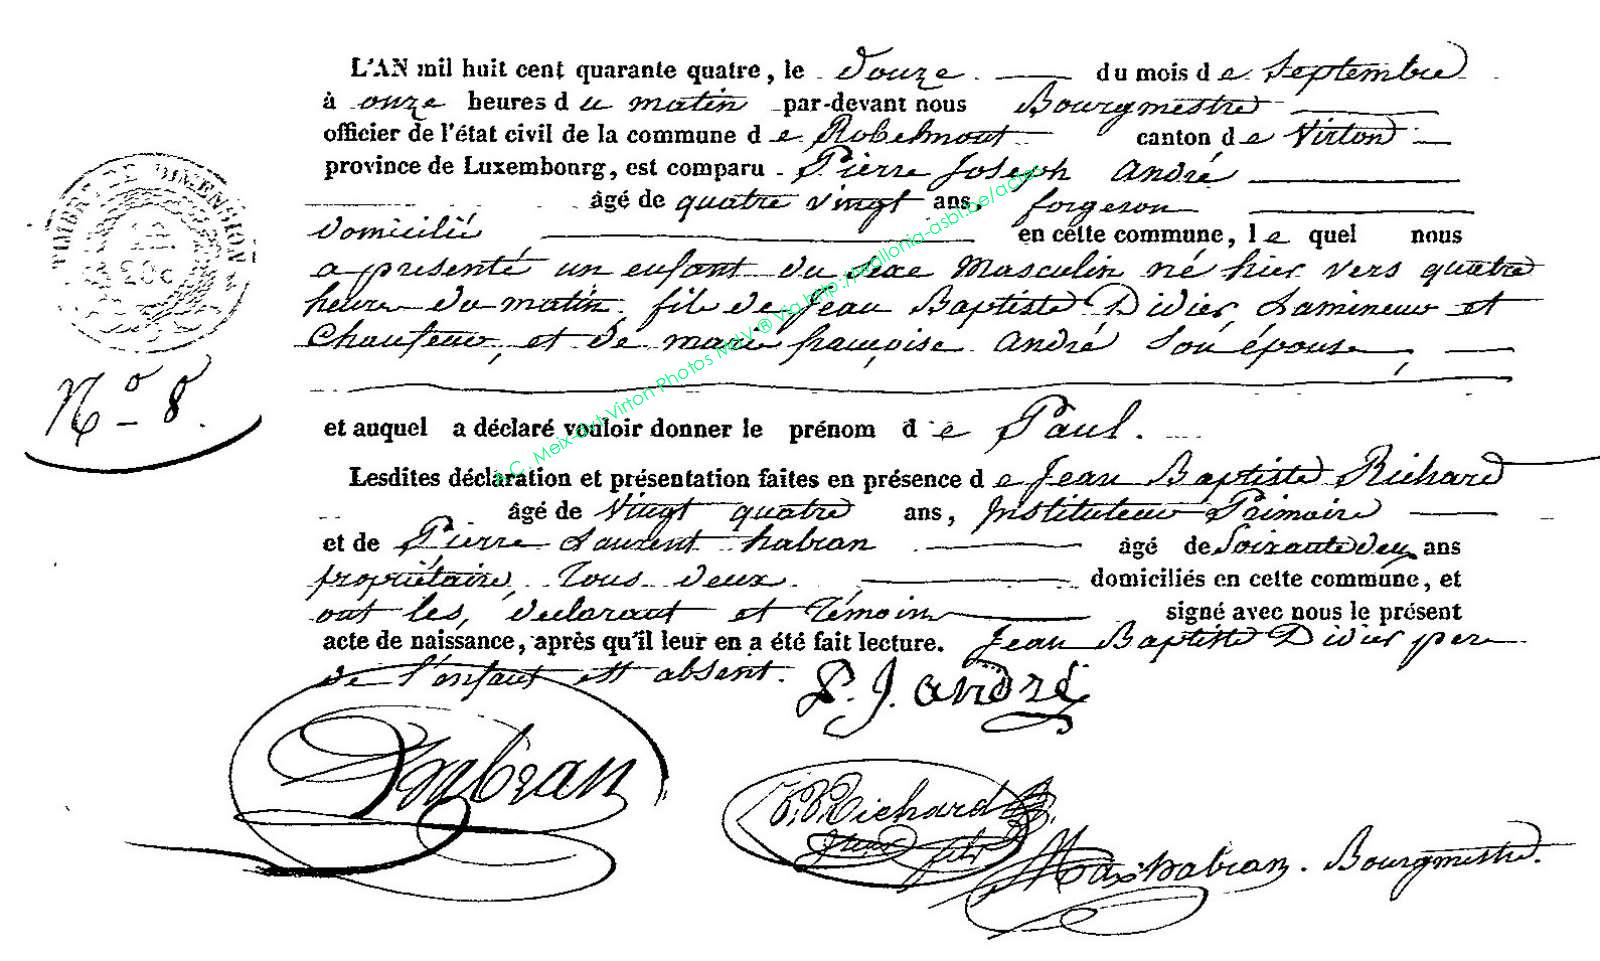 L'AN mil huit cent quarante quatre, le douze du mois de Septembre
à onze heures du matin par-devant nous Bourgmestre
officier de l'état civil de la commune de Robelmont canton de Virton
province de Luxembourg, est comparu Pierre Joseph André
âgé de quatre vingt ans, forgeron
domicilié en cette commune, le quel nous
a présenté un enfant du sexe Masculin né hier vers quatre
heure du matin, fil de Jean Baptiste Didier, Lamineur et
Chaufeur, et de marie françoise André Son épouse,
et auquel a déclaré vouloir donner le prénom de Paul.
Lesdites déclaration et présentation faites en présence de Jean Baptiste Richard
âgé de Vingt quatre ans, Instituteur Primaire
et de Pierre Laurent habran âgé de Soixante deux ans
propriétaire, Tous deux domiciliés en cette commune, et
ont les, declarant et Témoin signé avec nous le présent
acte de naissance, après qu'il leur en a été fait lecture. Jean Baptiste Didier pere
de l'enfant est absent.
TIMBRE DE DIMENSION
20c
No 8.
P. J. André
habran
J. B. Richard
habran. Bourgmestre.
A.C. Meix-dvt-Virton Photos MdV ® Via http://wallonia-asbl.be/actes